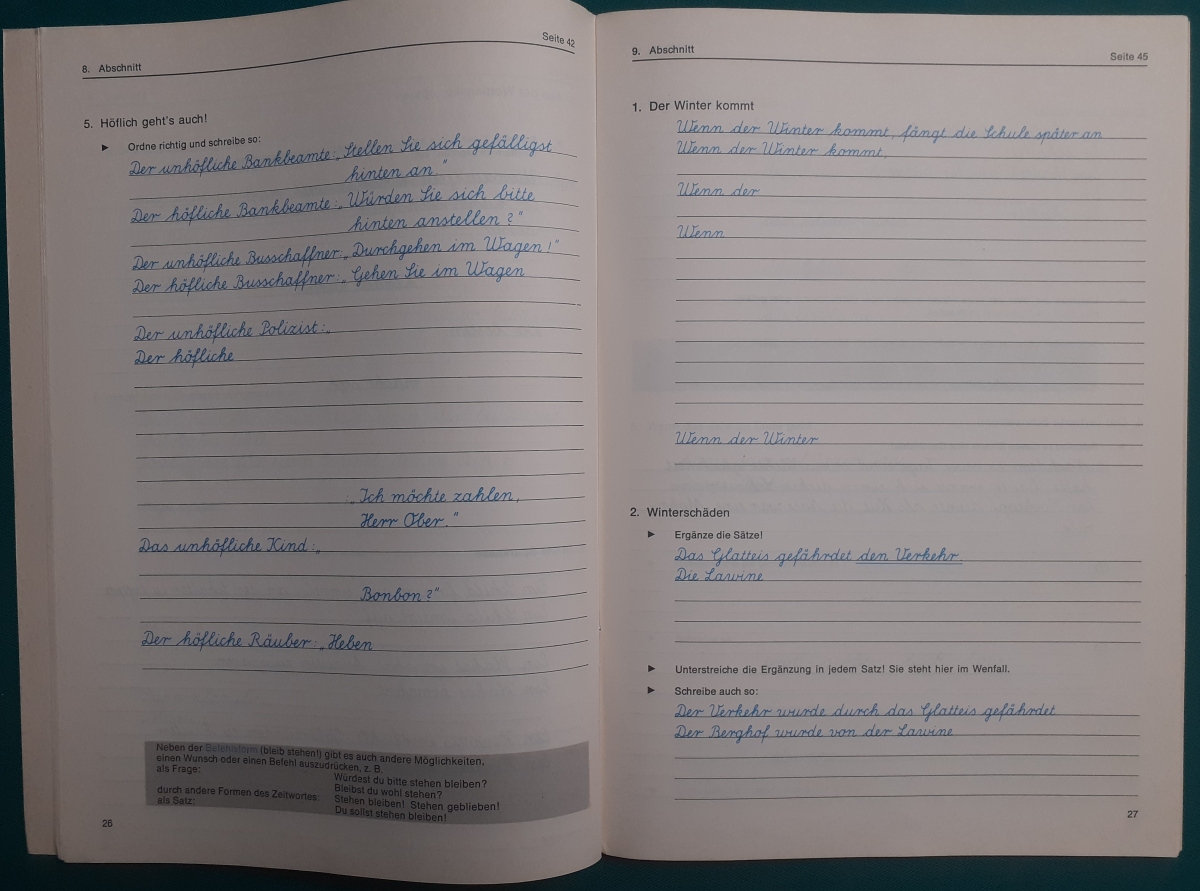 8. Abschnitt
Seite 42
5. Höflich geht's auch!
► Ordne richtig und schreibe so:
Der unhöfliche Bankbeamte: „Stellen Sie sich gefälligst
hinten an."
Der höfliche Bankbeamte: „Würden Sie sich bitte
hinten anstellen?"
Der unhöfliche Busschaffner: „Durchgehen im Wagen!"
Der höfliche Busschaffner: „Gehen Sie im Wagen
Der unhöfliche Polizist: „
Der höfliche
„Ich möchte zahlen,
Herr Ober."
Das unhöfliche Kind: „
Bonbon?"
Der höfliche Räuber: „Heben
Neben der Befehlsform (bleib stehen!) gibt es auch andere Möglichkeiten,
einen Wunsch oder einen Befehl auszudrücken, z. B.
als Frage: Würdest du bitte stehen bleiben?
Bleibst du wohl stehen?
durch andere Formen des Zeitwortes: Stehen bleiben! Stehen geblieben!
als Satz: Du sollst stehen bleiben!
26
9. Abschnitt
Seite 45
1. Der Winter kommt
Wenn der Winter kommt, fängt die Schule später an
Wenn der Winter kommt,
Wenn der
Wenn
Wenn der Winter
2. Winterschäden
► Ergänze die Sätze!
Das Glatteis gefährdet den Verkehr.
Die Lawine
► Unterstreiche die Ergänzung in jedem Satz! Sie steht hier im Wenfall.
► Schreibe auch so:
Der Verkehr wurde durch das Glatteis gefährdet
Der Berghof wurde von der Lawine
27